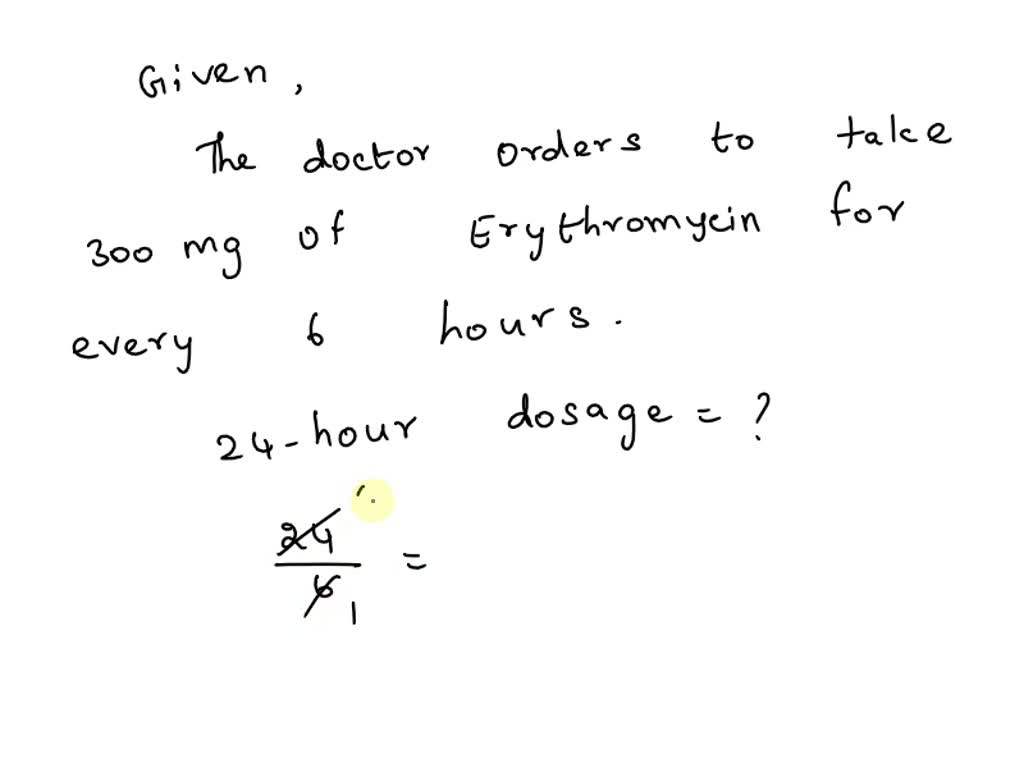 Given,
The doctor orders to take
300 mg of Erythromycin for
every 6 hours.
24-hour dosage = ?
24
6 1 =